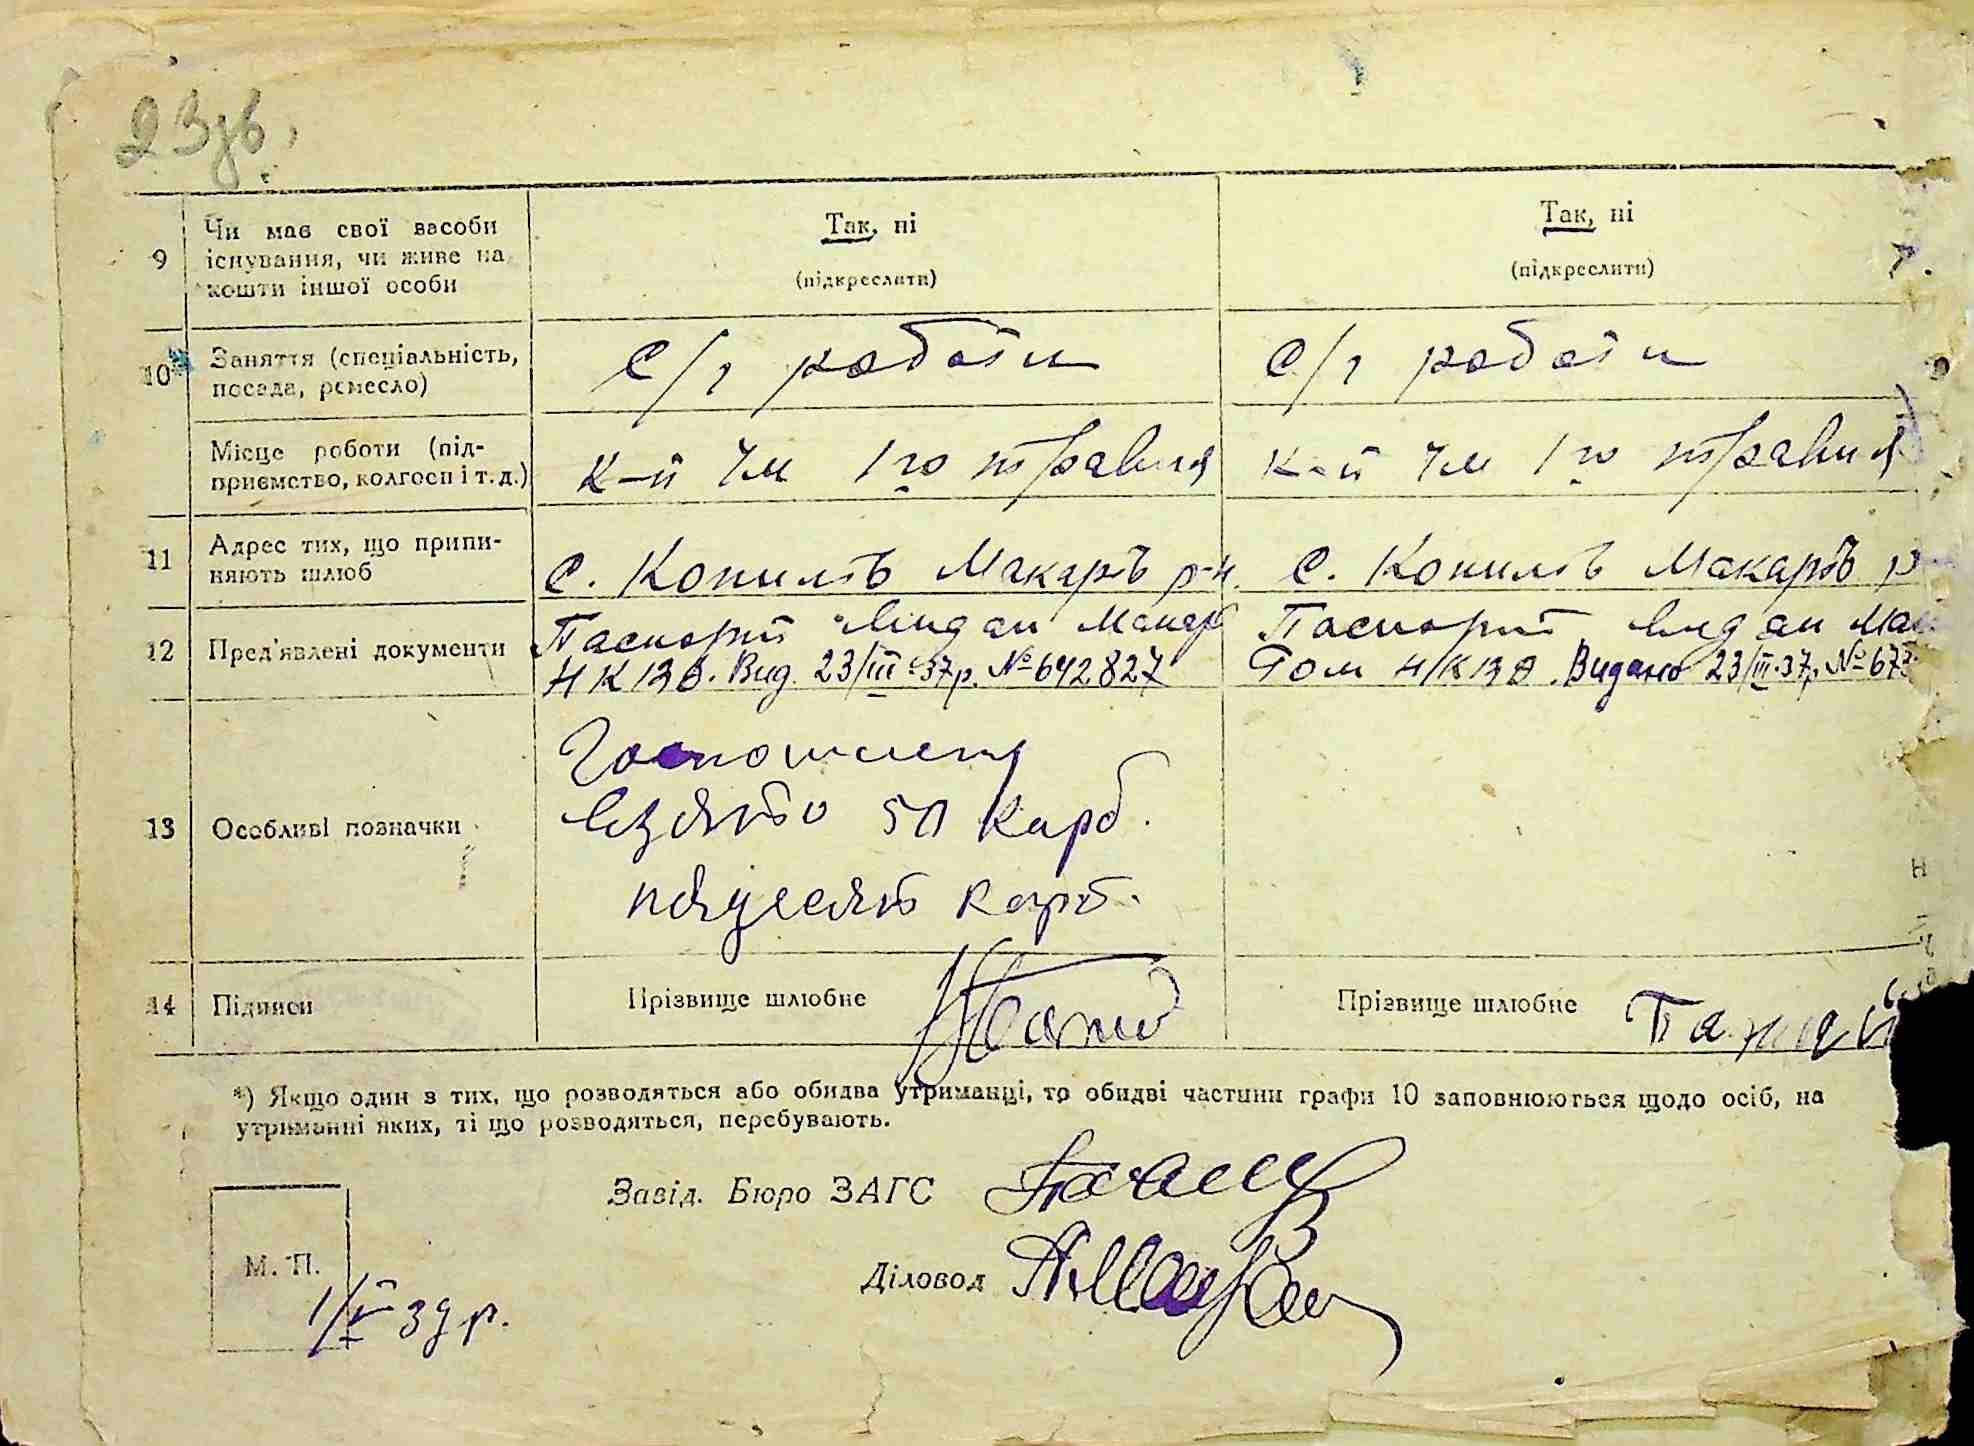 23зв.
9
Чи має свої засоби
існування, чи живе на
кошти іншої особи
Так, ні
(підкреслити)
Так, ні
(підкреслити)
10*
Заняття (спеціальність,
посада, ремесло)
С/г роботи
С/г роботи
Місце роботи (під-
приємство, колгосп і т. д.)
К-п Ім 1го травня
К-п Ім 1го травня
11
Адрес тих, що припи-
няють шлюб
С. Копилів Макарів р-н.
С. Копилів Макарів р
12
Пред'явлені документи
Паспорт видан Макар
НКВД. Вид. 23/III-37р. № 642827
Паспорт видан Мак
НКВД. Видано 23/III.37р. № 673
13
Особливі позначки
Госпошлену
взято 50 карб.
пядесят карб.
14
Підписи
Прізвище шлюбне
Прізвище шлюбне
*) Якщо один з тих, що розводяться або обидва утриманці, то обидві частини графи 10 заповнюються щодо осіб, на
утриманні яких, ті що розводяться, перебувають.
Завід. Бюро ЗАГС
Діловод
М. П.
1/V 39 р.